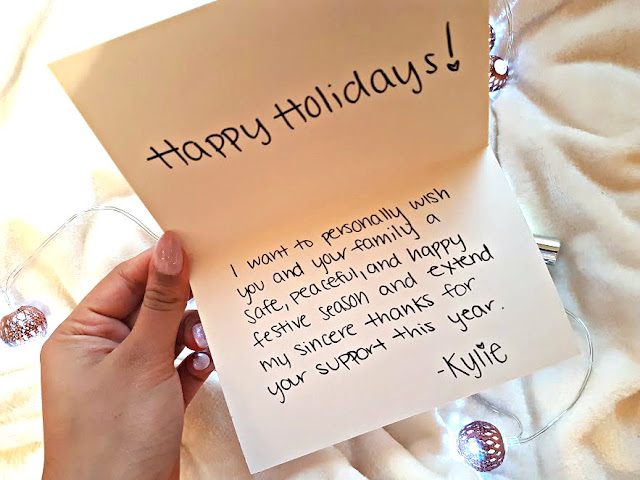 Happy Holidays!
I want to personally wish
you and your family a
safe, peaceful, and happy
festive season and extend
my sincere thanks for
your support this year.
-Kylie